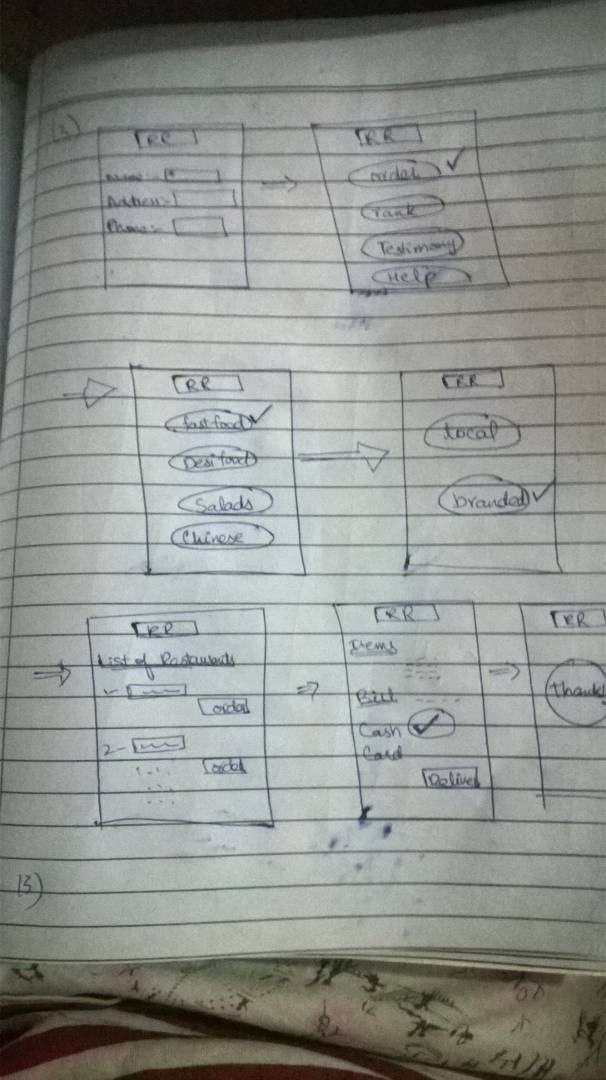 RR
Name:-
Address:-
Phone:-
RR
order
rank
Testimony
Help
RR
fast food
Desi food
Salads
Chinese
RR
local
branded
RR
List of Restaurants
1-
order
2-
order
RR
Items
Bill
Cash
Card
Deliver
RR
thank
13)